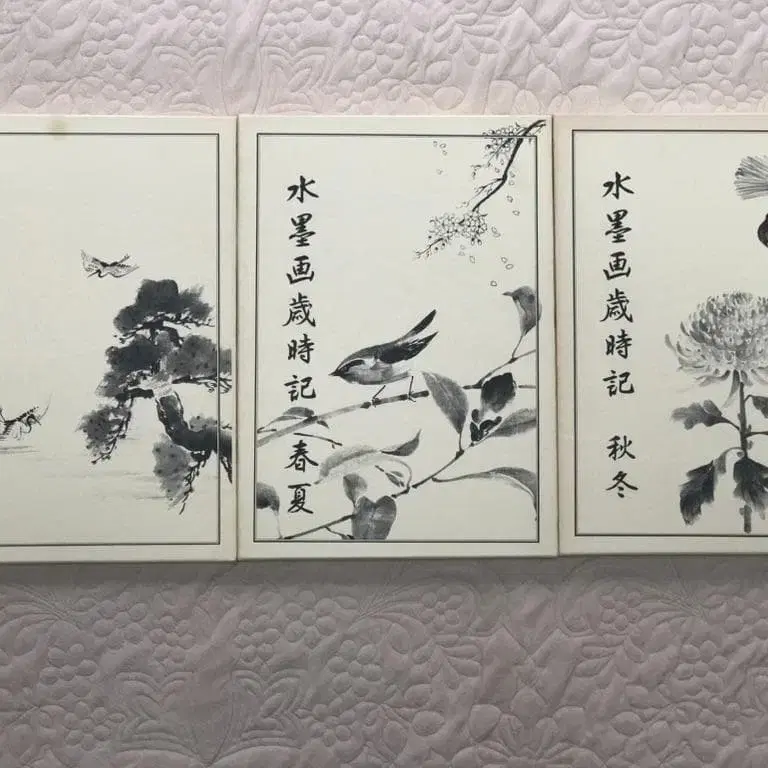 水墨画歳時記 春夏
水墨画歳時記 秋冬